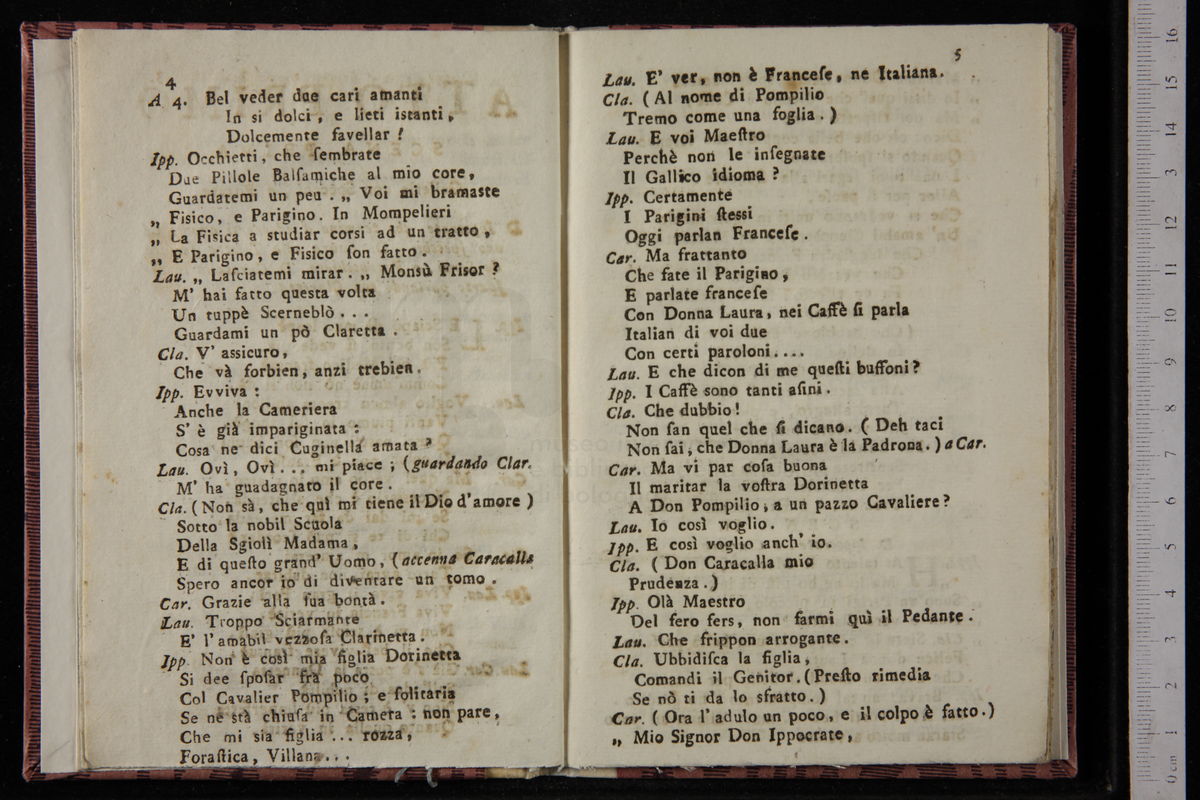 4
A 4. Bel veder due cari amanti
In si dolci, e lieti istanti,
Dolcemente favellar!
Ipp. Occhietti, che ſembrate
Due Pillole Balſamiche al mio core,
Guardatemi un peu. „ Voi mi bramaste
„ Fisico, e Parigino. In Mompelieri
„ La Fisica a studiar corsi ad un tratto,
„ E Parigino, e Fisico ſon fatto.
Lau. „ Laſciatemi mirar. „ Monsù Frisor?
M' hai fatto questa volta
Un tuppè Scerneblò...
Guardami un pò Claretta.
Cla. V' assicuro,
Che và forbien, anzi trebien.
Ipp. Evviva:
Anche la Cameriera
S' è già impariginata:
Cosa ne dici Cuginella amata?
Lau. Ovì, Ovì... mi piace; (guardando Clar.
M' ha guadagnato il core.
Cla. (Non sà, che quì mi tiene il Dio d'amore)
Sotto la nobil Scuola
Della Sgiolì Madama,
E di queſto grand' Uomo, (accenna Caracalla
Spero ancor io di diventare un tomo.
Car. Grazie alla ſua bontà.
Lau. Troppo Sciarmante
E' l' amabil vezzoſa Clarinetta.
Ipp. Non è così mia figlia Dorinetta
Si dee ſpoſar frà poco
Col Cavalier Pompilio; e ſolitaria
Se ne stà chiuſa in Camera: non pare,
Che mi sia figlia... rozza,
Foraſtica, Villana...
5
Lau. E' ver, non è Franceſe, ne Italiana.
Cla. (Al nome di Pompilio
Tremo come una foglia.)
Lau. E voi Maeſtro
Perchè non le inſegnate
Il Gallico idioma?
Ipp. Certamente
I Parigini ſtessi
Oggi parlan Franceſe.
Car. Ma frattanto
Che fate il Parigino,
E parlate franceſe
Con Donna Laura, nei Caffè ſi parla
Italian di voi due
Con certi paroloni....
Lau. E che dicon di me queſti buffoni?
Ipp. I Caffè sono tanti aſini.
Cla. Che dubbio!
Non ſan quel che ſi dicano. (Deh taci
Non ſai, che Donna Laura è la Padrona.) a Car.
Car. Ma vi par coſa buona
Il maritar la voſtra Dorinetta
A Don Pompilio, a un pazzo Cavaliere?
Lau. Io così voglio.
Ipp. E così voglio anch' io.
Cla. (Don Caracalla mio
Prudenza.)
Ipp. Olà Maestro
Del fero fers, non farmi quì il Pedante.
Lau. Che frippon arrogante.
Cla. Ubbidiſca la figlia,
Comandi il Genitor. (Preſto rimedia
Se nò ti da lo sfratto.)
Car. (Ora l' adulo un poco, e il colpo è fatto.)
„ Mio Signor Don Ippocrate,
16
15
14
13
12
11
10
9
8
7
6
5
4
3
2
1
0 cm